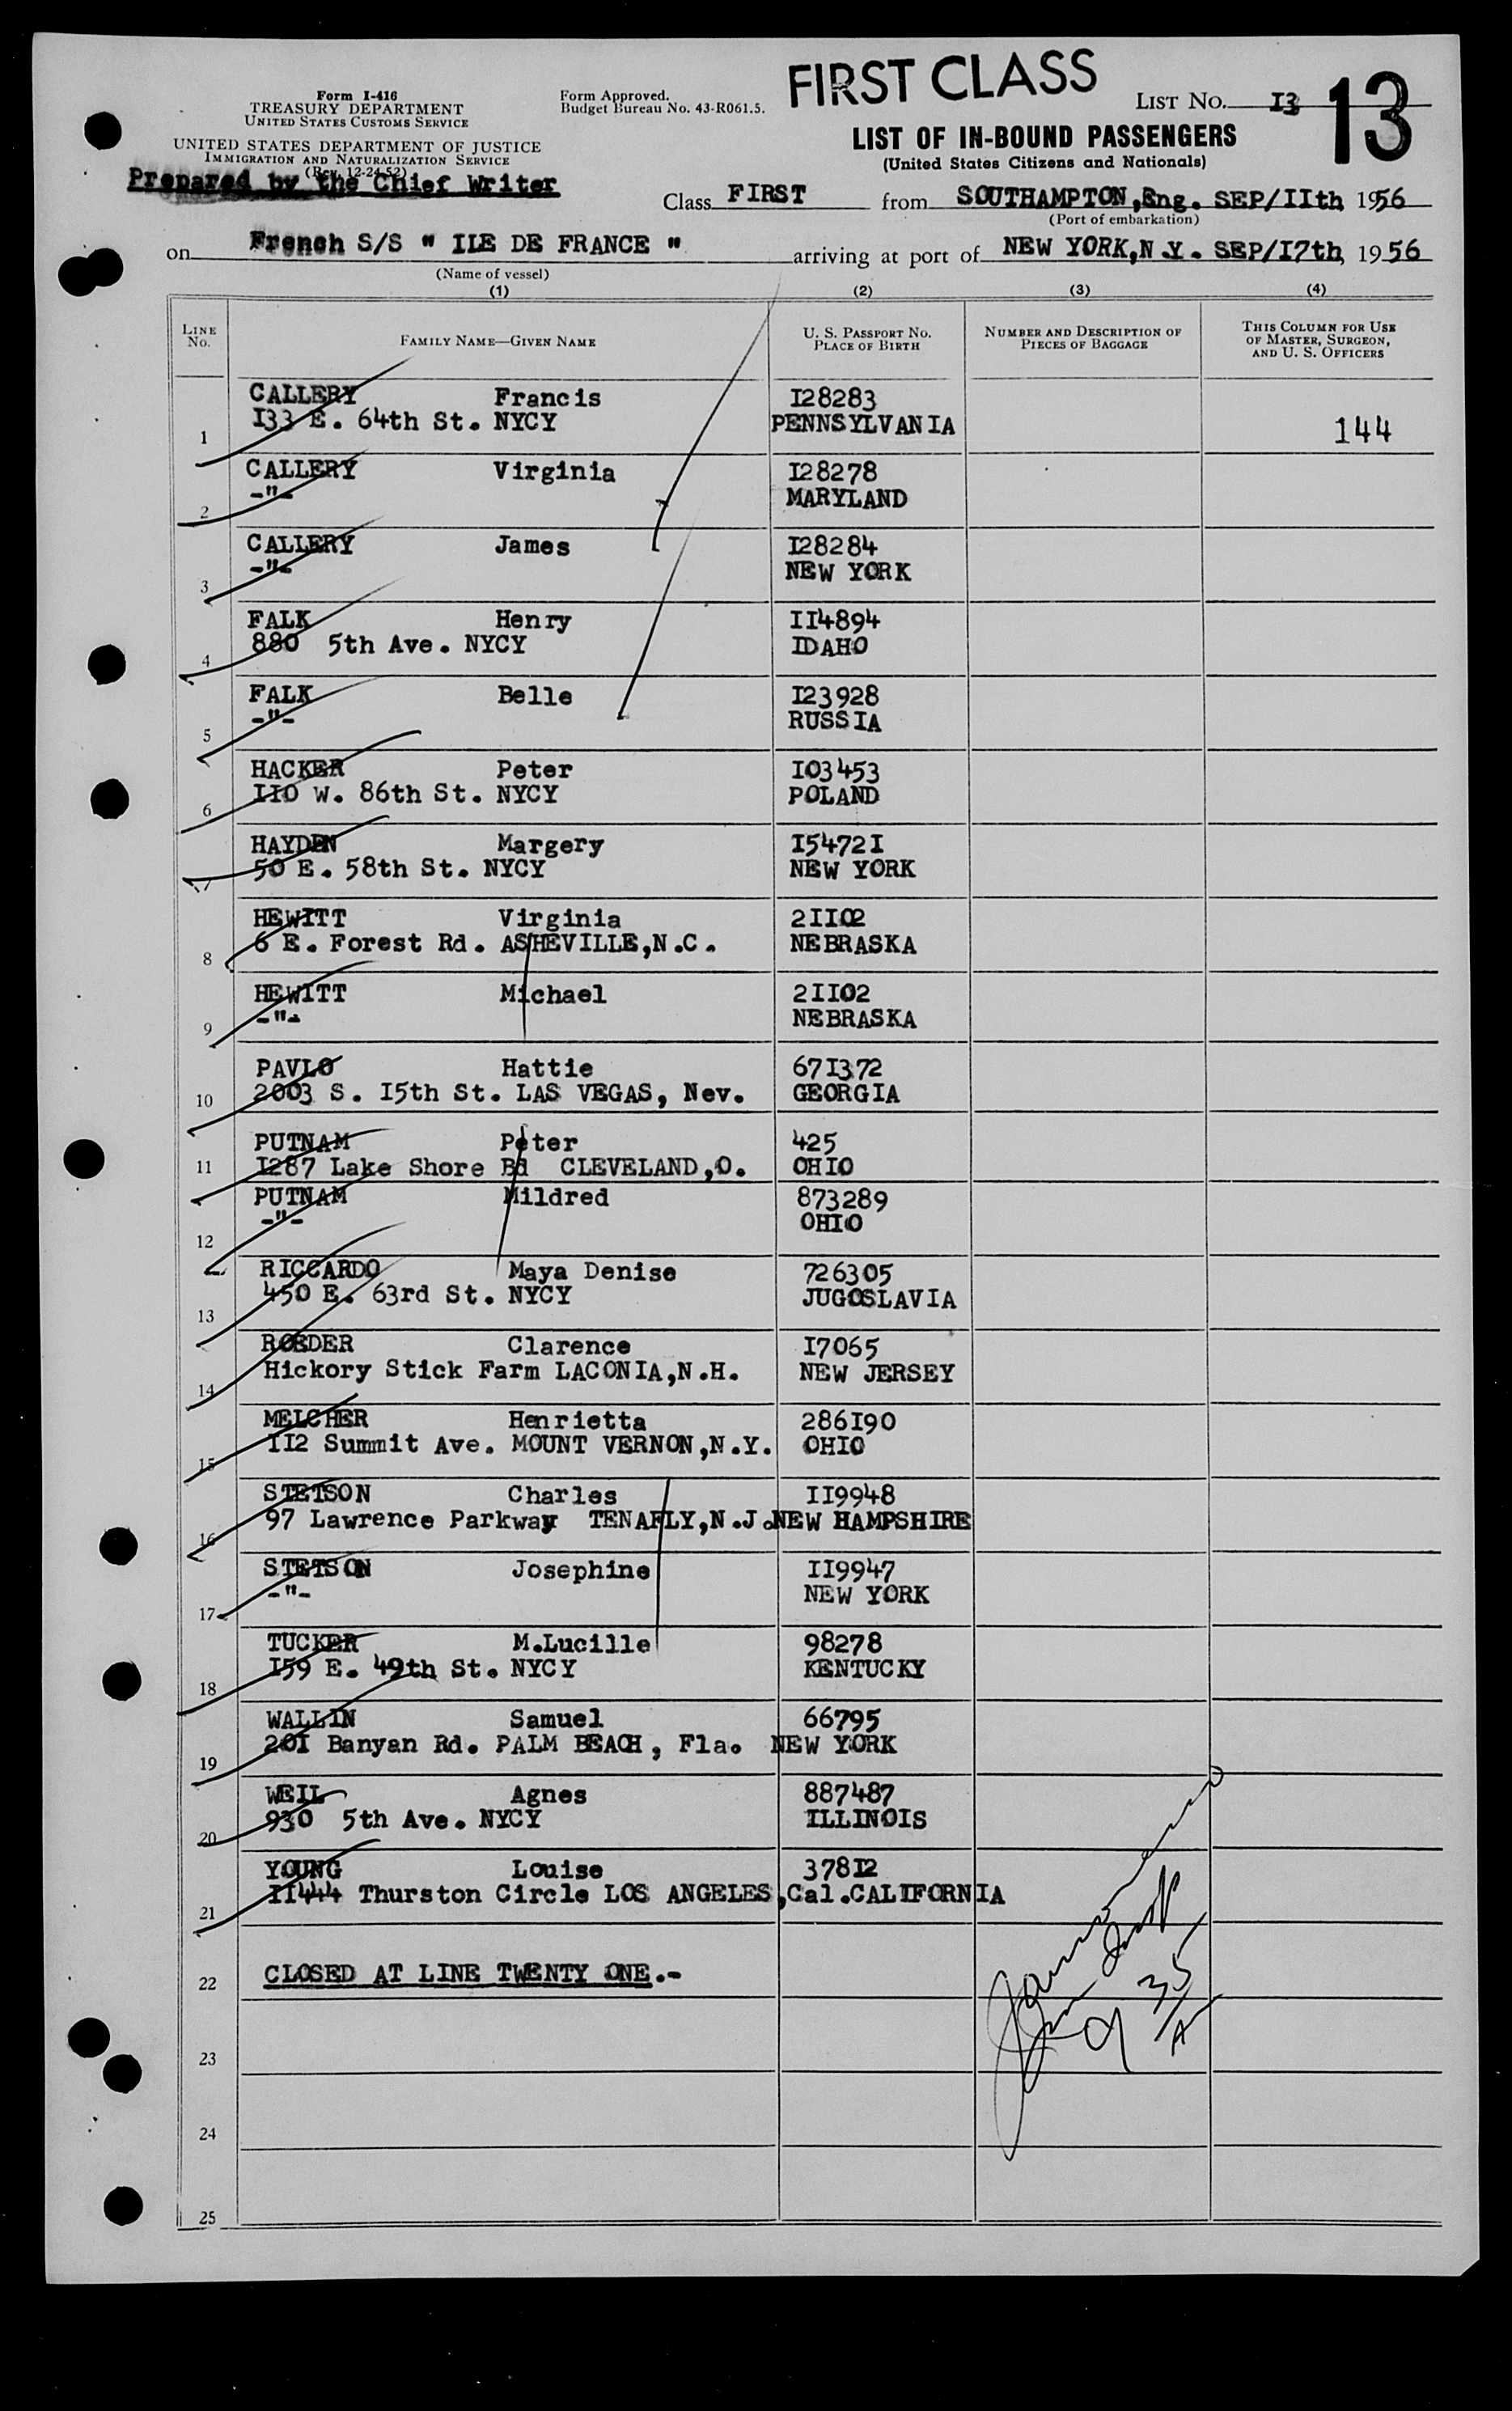 Form I-416
TREASURY DEPARTMENT
UNITED STATES CUSTOMS SERVICE
UNITED STATES DEPARTMENT OF JUSTICE
IMMIGRATION AND NATURALIZATION SERVICE
(Rev. 12-24-52)
Prepared by the Chief Writer
Form Approved.
Budget Bureau No. 43-R061.5.
FIRST CLASS
LIST No. I3 13
LIST OF IN-BOUND PASSENGERS
(United States Citizens and Nationals)
Class FIRST from SOUTHAMPTON,Eng. SEP/IIth 1956
(Port of embarkation)
on French S/S " ILE DE FRANCE " arriving at port of NEW YORK,N.Y. SEP/I7th, 1956
(Name of vessel)
(1) (2) (3) (4)
LINE No. FAMILY NAME—GIVEN NAME U. S. PASSPORT No. PLACE OF BIRTH NUMBER AND DESCRIPTION OF PIECES OF BAGGAGE THIS COLUMN FOR USE OF MASTER, SURGEON, AND U. S. OFFICERS
CALLERY Francis I28283
1 I33 E. 64th St. NYCY PENNSYLVANIA 144
CALLERY Virginia I28278
2 -"- MARYLAND
CALLERY James I28284
3 -"- NEW YORK
FALK Henry II4894
4 880 5th Ave. NYCY IDAHO
FALK Belle I23928
5 -"- RUSSIA
HACKER Peter I03453
6 II0 W. 86th St. NYCY POLAND
HAYDEN Margery I5472I
7 50 E. 58th St. NYCY NEW YORK
HEWITT Virginia 2II02
8 6 E. Forest Rd. ASHEVILLE,N.C. NEBRASKA
HEWITT Michael 2II02
9 -"- NEBRASKA
PAVLO Hattie 67I372
10 2003 S. I5th St. LAS VEGAS, Nev. GEORGIA
PUTNAM Peter 425
11 I287 Lake Shore Bd CLEVELAND,O. OHIO
PUTNAM Mildred 873289
12 -"- OHIO
RICCARDO Maya Denise 726305
13 450 E. 63rd St. NYCY JUGOSLAVIA
ROEDER Clarence I7065
14 Hickory Stick Farm LACONIA,N.H. NEW JERSEY
MELCHER Henrietta 286I90
15 II2 Summit Ave. MOUNT VERNON,N.Y. OHIO
STETSON Charles II9948
16 97 Lawrence Parkway TENAFLY,N.J. NEW HAMPSHIRE
STETSON Josephine II9947
17 -"- NEW YORK
TUCKER M.Lucille 98278
18 I59 E. 49th St. NYCY KENTUCKY
WALLIN Samuel 66795
19 20I Banyan Rd. PALM BEACH, Fla. NEW YORK
WEIL Agnes 887487
20 930 5th Ave. NYCY ILLINOIS
YOUNG Louise 378I2
21 II444 Thurston Circle LOS ANGELES,Cal.CALIFORNIA
22 CLOSED AT LINE TWENTY ONE.-
23
24
25